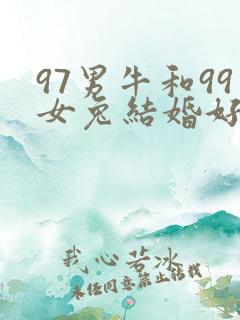 97男牛和99
女兔結婚好
我心若冰
未任同意禁止帖我